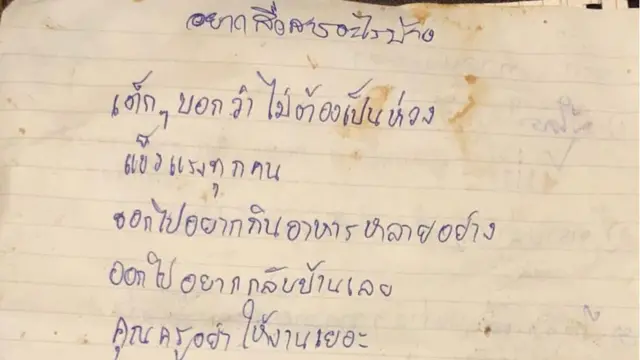 อยากสื่อสารอะไรบ้าง
เด็กๆ บอกว่า ไม่ต้องเป็นห่วง
แข็งแรงทุกคน
ออกไปอยากกินอาหารหลายอย่าง
ออกไป อยากกลับบ้านเลย
คุณครูอย่าให้งานเยอะ